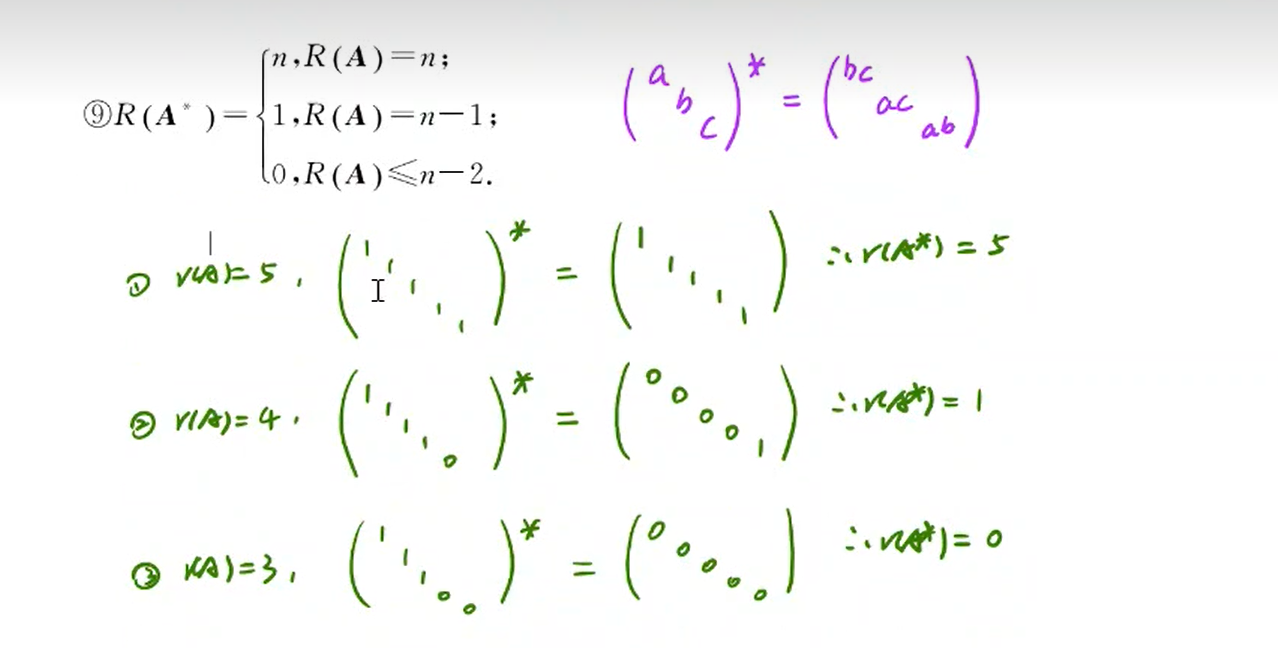 ⑨R(A*)={n,R(A)=n;
1,R(A)=n−1;
0,R(A)≤n−2.
(a b c)* = (bc ac ab)
① r(A)=5, (1 1 1 1 1)* = (1 1 1 1 1) ∴r(A*)=5
② r(A)=4, (1 1 1 1 0)* = (0 0 0 0 1) ∴r(A*)=1
③ r(A)=3, (1 1 1 0 0)* = (0 0 0 0 0) ∴r(A*)=0